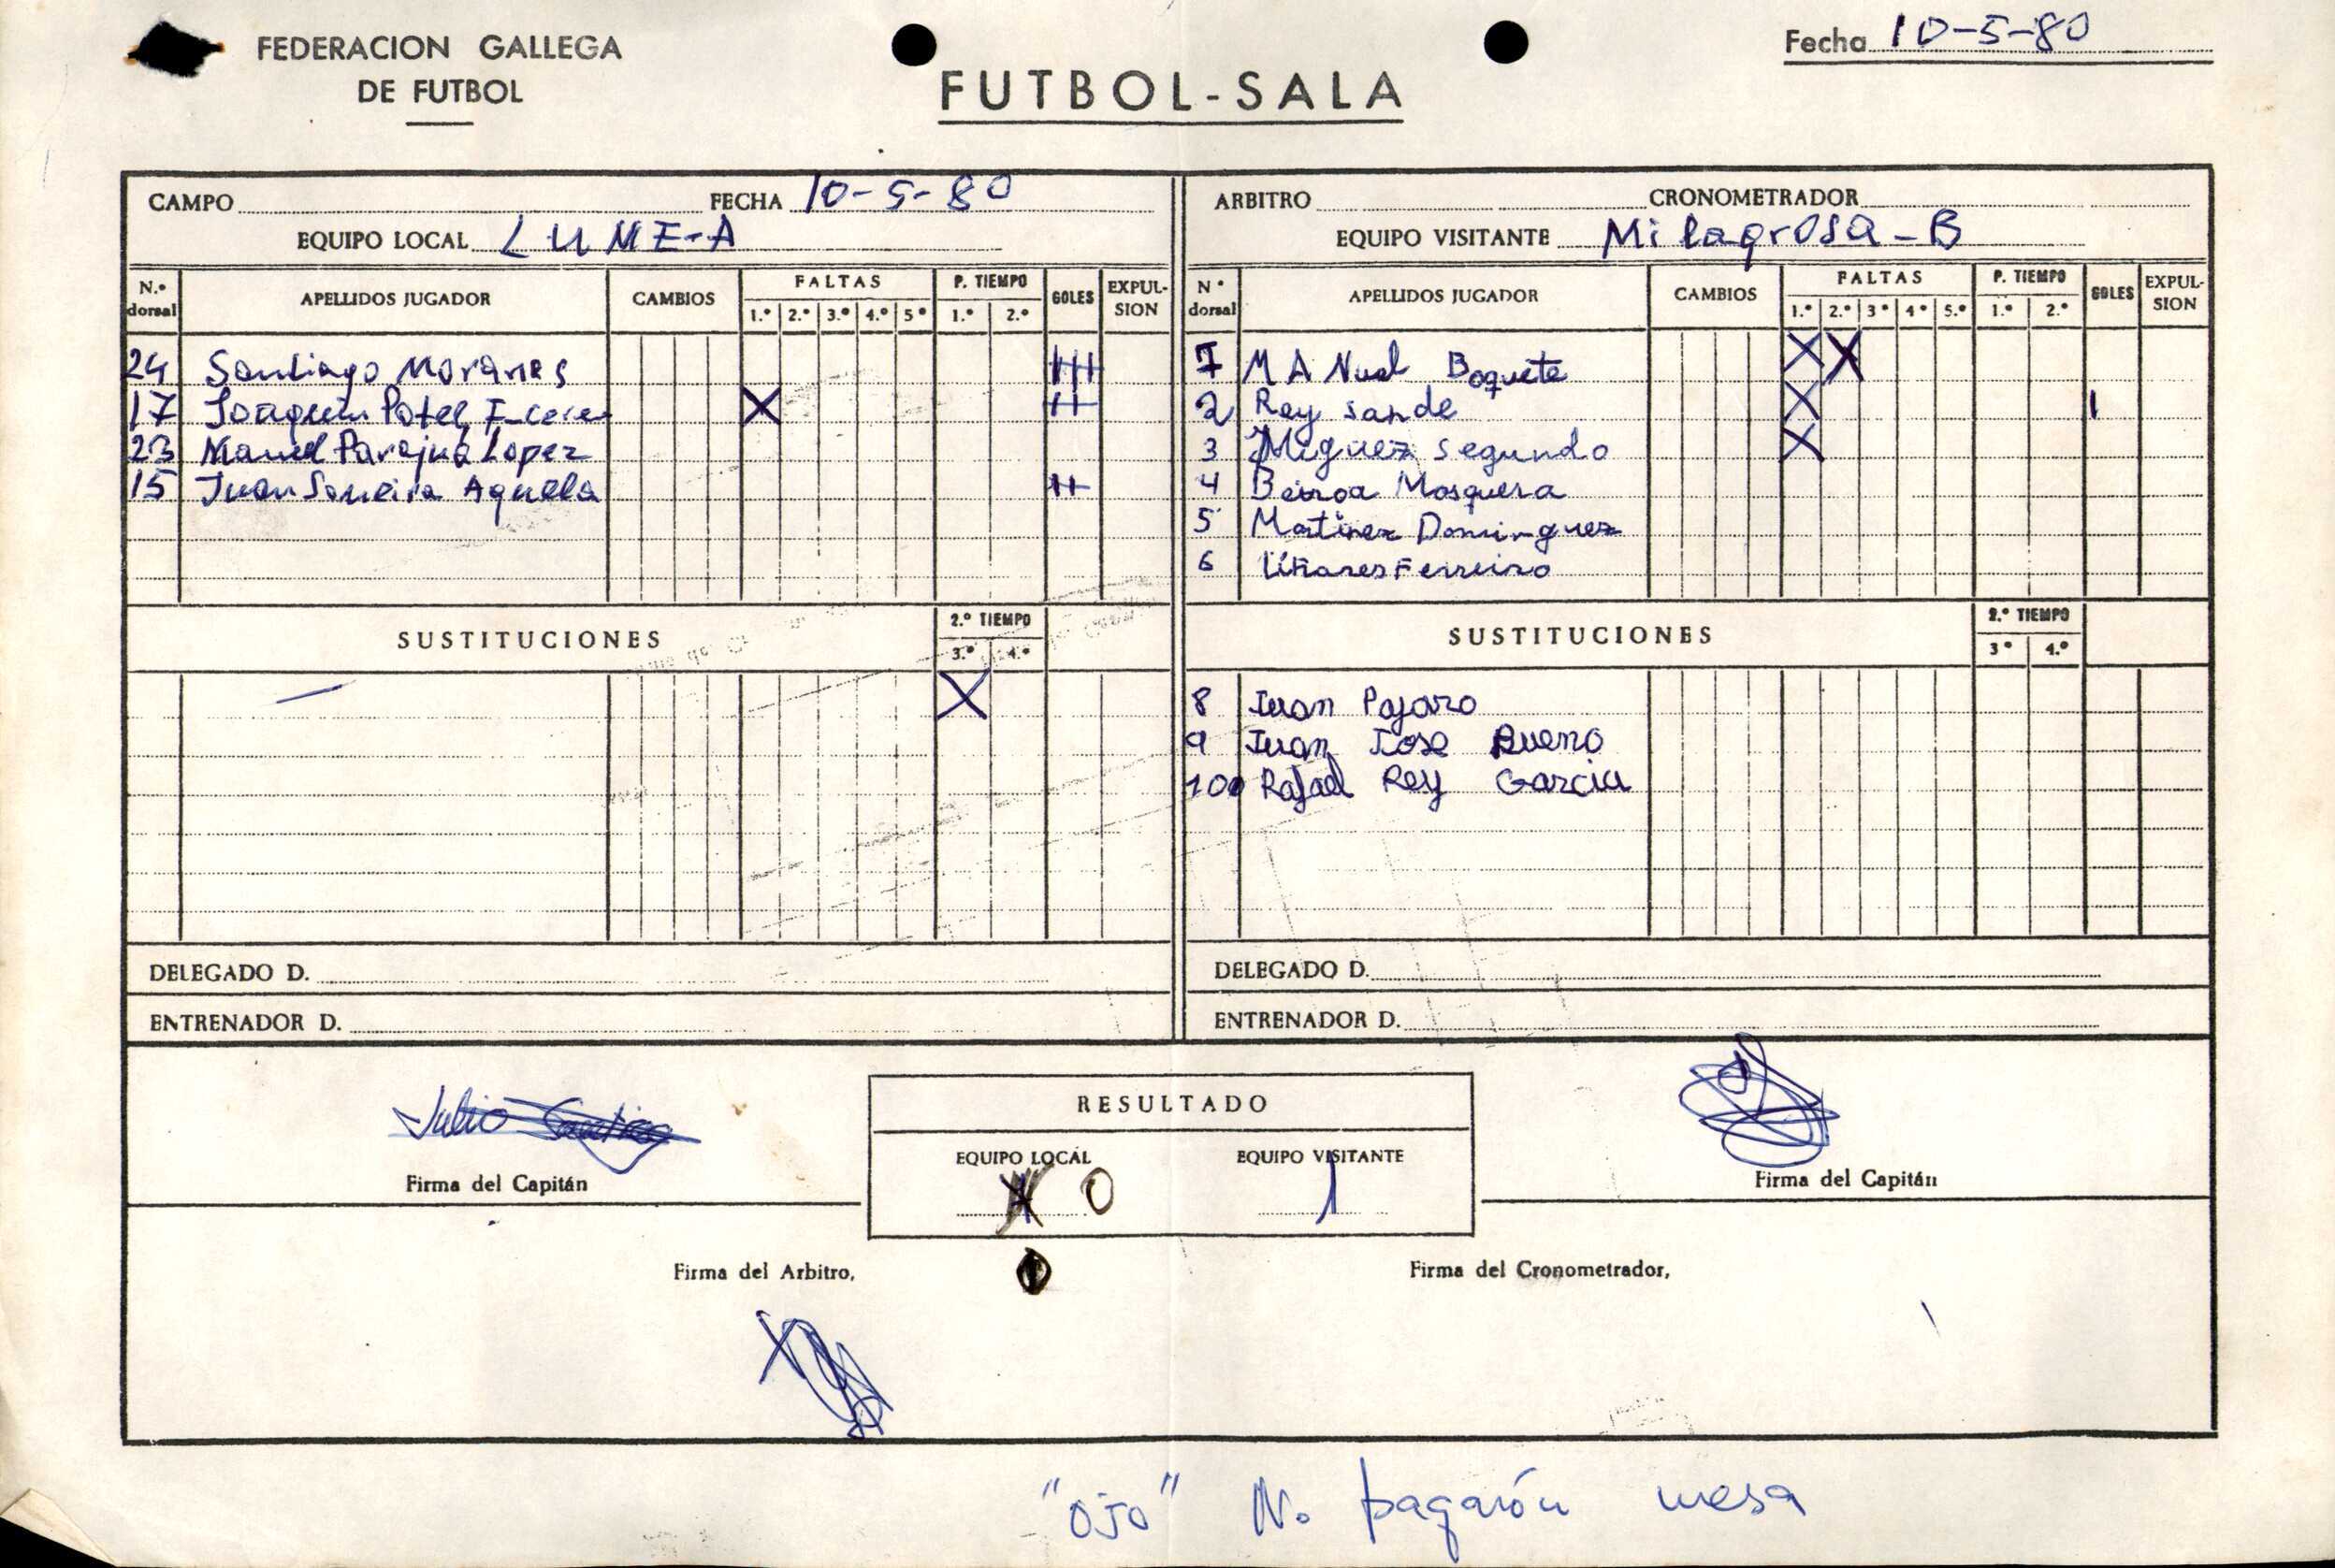 FEDERACION GALLEGA
DE FUTBOL
FUTBOL-SALA
Fecha 10-5-80
CAMPO FECHA 10-5-80
EQUIPO LOCAL LUME-A
N.º dorsal APELLIDOS JUGADOR CAMBIOS FALTAS 1.º 2.º 3.º 4.º 5º P. TIEMPO 1.º 2.º GOLES EXPULSION
24 Santiago Moranes
17 Joaquin Potel
23 Manuel Parajuá Lopez
15 Juan Soneira
SUSTITUCIONES 2.º TIEMPO 3.º 4.º
DELEGADO D.
ENTRENADOR D.
ARBITRO CRONOMETRADOR
EQUIPO VISITANTE Milagrosa-B
Nº dorsal APELLIDOS JUGADOR CAMBIOS FALTAS 1.º 2.º 3º 4º 5.º P. TIEMPO 1.º 2.º GOLES EXPULSION
7 MANuel Boquete
2 Rey sande I
3 Miguez segundo
4 Beiroa Mosquera
5 Martinez Dominguez
6 Liñares Ferreiro
SUSTITUCIONES 2.º TIEMPO 3º 4.º
8 Juan Pajaro
9 Juan Jose Bueno
10 Rafael Rey Garcia
DELEGADO D.
ENTRENADOR D.
Julio
Firma del Capitán
RESULTADO
EQUIPO LOCAL EQUIPO VISITANTE
0 1
Firma del Capitán
Firma del Arbitro,
Firma del Cronometrador,
"OJO" No pagarón mesa